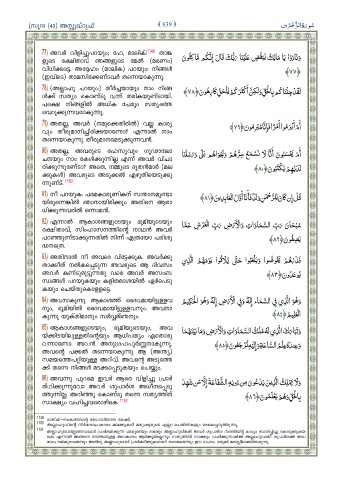 (സൂറ: (43) അസ്സുഖ്റുഫ്
639
سورة الزخرف
77) അവര്‍ വിളിച്ചുപറയും; ഹേ, മാലിക്! താങ്ക
ളുടെ രക്ഷിതാവ് ഞങ്ങളുടെ മേല്‍ (മരണം)
വിധിക്കട്ടെ. അദ്ദേഹം (മാലിക്) പറയും: നിങ്ങള്‍
(ഇവിടെ) താമസിക്കേണ്ടവര്‍ തന്നെയാകുന്നു.
وَنَادَوْا يَا مَالِكُ لِيَقْضِ عَلَيْنَا رَبُّكَ قَالَ إِنَّكُم مَّاكِثُونَ
﴿٧٧﴾
78) (അല്ലാഹു പറയും:) തീര്‍ച്ചയായും നാം നിങ്ങ
ള്‍ക്ക് സത്യം കൊണ്ടു വന്ന് തരികയുണ്ടായി.
പക്ഷെ നിങ്ങളില്‍ അധിക പേരും സത്യത്തെ
വെറുക്കുന്നവരാകുന്നു.
لَقَدْ جِئْنَاكُم بِالْحَقِّ وَلَكِنَّ أَكْثَرَكُمْ لِلْحَقِّ كَارِهُونَ ﴿٧٨﴾
79) അതല്ല, അവര്‍ (നമുക്കെതിരില്‍) വല്ല കാര്യ
വും തീരുമാനിച്ചിരിക്കയാണോ? എന്നാല്‍ നാം
തന്നെയാകുന്നു തീരുമാനമെടുക്കുന്നവന്‍.
أَمْ أَبْرَمُوا أَمْرًا فَإِنَّا مُبْرِمُونَ ﴿٧٩﴾
80) അതല്ല, അവരുടെ രഹസ്യവും ഗൂഢാലോ
ചനയും നാം കേള്‍ക്കുന്നില്ല എന്ന് അവര്‍ വിചാ
രിക്കുന്നുണ്ടോ? അതെ, നമ്മുടെ ദൂതന്‍മാര്‍ (മല
ക്കുകള്‍) അവരുടെ അടുക്കല്‍ എഴുതിയെടുക്കു
ന്നുണ്ട്.
أَمْ يَحْسَبُونَ أَنَّا لَا نَسْمَعُ سِرَّهُمْ وَنَجْوَاهُم بَلَى وَرُسُلُنَا
لَدَيْهِمْ يَكْتُبُونَ ﴿٨٠﴾
81) നീ പറയുക: പരമകാരുണികന് സന്താനമുണ്ടാ
യിരുന്നെങ്കില്‍ ഞാനായിരിക്കും അതിനെ ആരാ
ധിക്കുന്നവരില്‍ ഒന്നാമന്‍.
قُلْ إِن كَانَ لِلرَّحْمَنِ وَلَدٌ فَأَنَا أَوَّلُ الْعَابِدِينَ ﴿٨١﴾
82) എന്നാല്‍ ആകാശങ്ങളുടെയും ഭൂമിയുടെയും
രക്ഷിതാവ്, സിംഹാസനത്തിന്റെ നാഥന്‍ അവര്‍
പറഞ്ഞുണ്ടാക്കുന്നതില്‍ നിന്ന് എത്രയോ പരിശു
ദ്ധനത്രെ.
سُبْحَانَ رَبِّ السَّمَاوَاتِ وَالْأَرْضِ رَبِّ الْعَرْشِ عَمَّا
يَصِفُونَ ﴿٨٢﴾
83) അതിനാല്‍ നീ അവരെ വിട്ടേക്കുക. അവര്‍ക്കു
താക്കീത് നല്‍കപ്പെടുന്ന അവരുടെ ആ ദിവസം
അവര്‍ കണ്ടുമുട്ടുന്നതു വരെ അവര്‍ അസംബ
ന്ധങ്ങള്‍ പറയുകയും കളിതമാശയില്‍ ഏര്‍പെടു
കയും ചെയ്തുകൊള്ളട്ടെ.
فَذَرْهُمْ يَخُوضُوا وَيَلْعَبُوا حَتَّى يُلَاقُوا يَوْمَهُمُ الَّذِي
يُوعَدُونَ ﴿٨٣﴾
84) അവനാകുന്നു ആകാശത്ത് ദൈവമായിട്ടുള്ളവ
നും, ഭൂമിയില്‍ ദൈവമായിട്ടുള്ളവനും. അവനാ
കുന്നു യുക്തിമാനും സര്‍വ്വജ്ഞനും.
وَهُوَ الَّذِي فِي السَّمَاءِ إِلَهٌ وَفِي الْأَرْضِ إِلَهٌ وَهُوَ الْحَكِيمُ
الْعَلِيمُ ﴿٨٤﴾
85) ആകാശങ്ങളുടെയും, ഭൂമിയുടെയും, അവ
യ്ക്കിടയിലുള്ളതിന്റെയും ആധിപത്യം ഏതൊരു
വന്നാണോ അവന്‍ അനുഗ്രഹപൂര്‍ണ്ണനാകുന്നു.
അവന്റെ പക്കല്‍ തന്നെയാകുന്നു ആ (അന്ത്യ)
സമയത്തെപറ്റിയുള്ള അറിവ്. അവന്റെ അടുത്തേ
ക്ക് തന്നെ നിങ്ങള്‍ മടക്കപ്പെടുകയും ചെയ്യും.
وَتَبَارَكَ الَّذِي لَهُ مُلْكُ السَّمَاوَاتِ وَالْأَرْضِ وَمَا بَيْنَهُمَا
وَعِندَهُ عِلْمُ السَّاعَةِ وَإِلَيْهِ تُرْجَعُونَ ﴿٨٥﴾
86) അവന്നു പുറമെ ഇവര്‍ ആരെ വിളിച്ചു പ്രാര്‍
ത്ഥിക്കുന്നുവോ അവര്‍ ശുപാര്‍ശ അധീനപ്പെടു
ത്തുന്നില്ല; അറിഞ്ഞു കൊണ്ടു തന്നെ സത്യത്തിന്
സാക്ഷ്യം വഹിച്ചവരൊഴികെ.
وَلَا يَمْلِكُ الَّذِينَ يَدْعُونَ مِن دُونِهِ الشَّفَاعَةَ إِلَّا مَن شَهِدَ
بِالْحَقِّ وَهُمْ يَعْلَمُونَ ﴿٨٦﴾